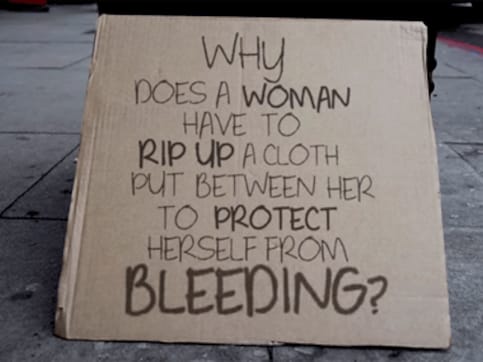 WHY
DOES A WOMAN
HAVE TO
RIP UP A CLOTH
PUT BETWEEN HER
TO PROTECT
HERSELF FROM
BLEEDING?